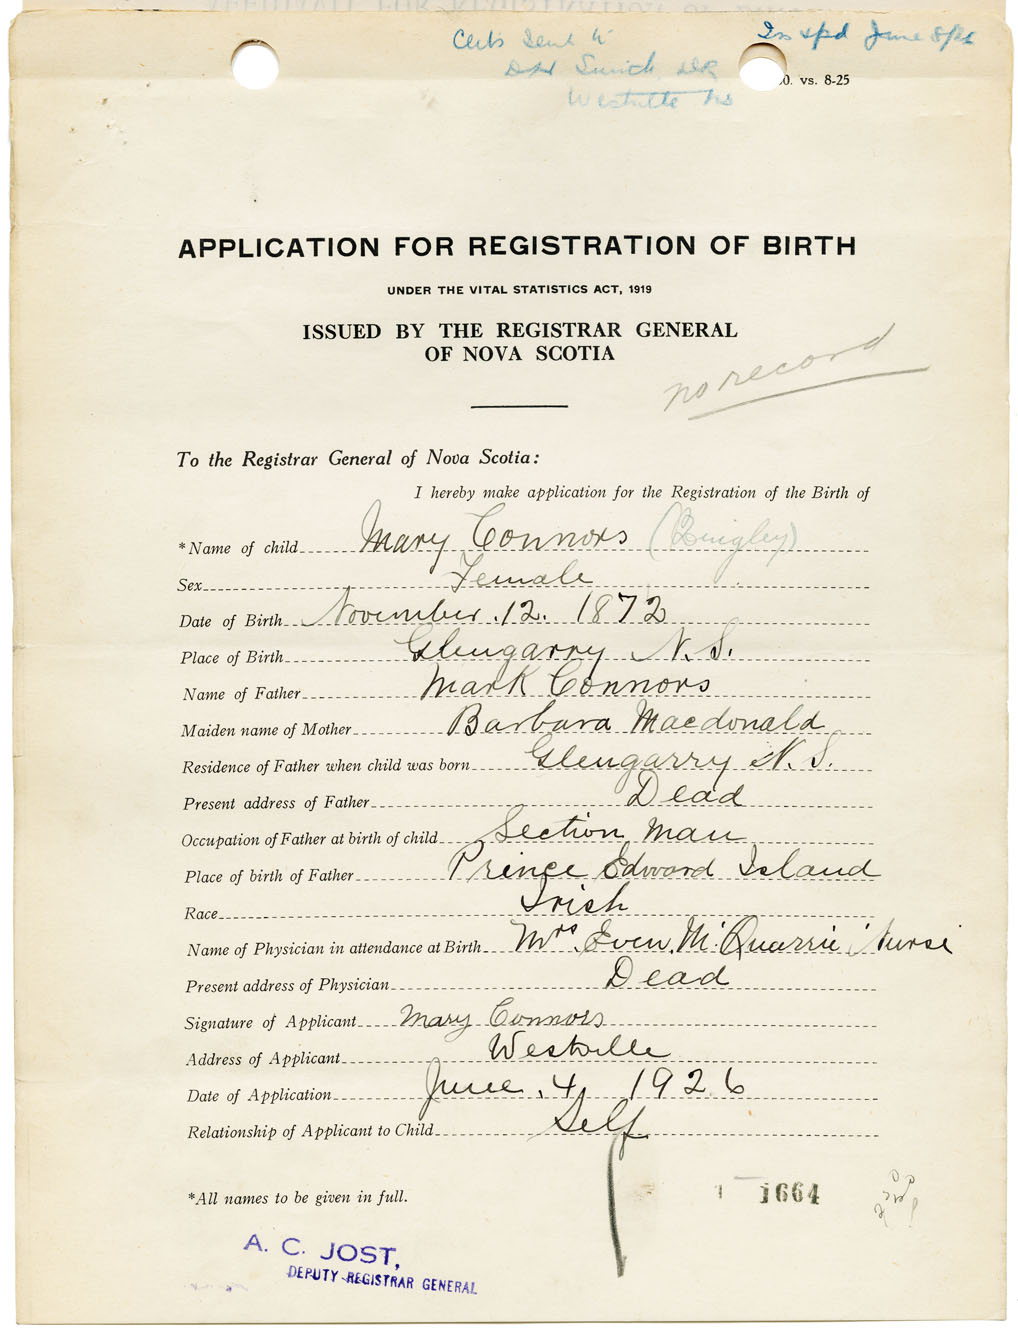 Certs Sent to
Insptd June 8/26
Smith DR
Westville NS
0. vs. 8-25
APPLICATION FOR REGISTRATION OF BIRTH
UNDER THE VITAL STATISTICS ACT, 1919
ISSUED BY THE REGISTRAR GENERAL
OF NOVA SCOTIA
no record
To the Registrar General of Nova Scotia:
I hereby make application for the Registration of the Birth of
*Name of child Mary Connors (Quigley)
Sex Female
Date of Birth November. 12. 1872
Place of Birth Glengarry N. S.
Name of Father Mark Connors
Maiden name of Mother Barbara Macdonald
Residence of Father when child was born Glengarry N. S.
Present address of Father Dead
Occupation of Father at birth of child Section Man
Place of birth of Father Prince Edward Island
Race Irish
Name of Physician in attendance at Birth Mrs. Even. Mc Quarrie Nurse
Present address of Physician Dead
Signature of Applicant Mary Connors
Address of Applicant Westville
Date of Application June. 4 1926
Relationship of Applicant to Child Self
*All names to be given in full.
1664
A. C. JOST,
DEPUTY REGISTRAR GENERAL